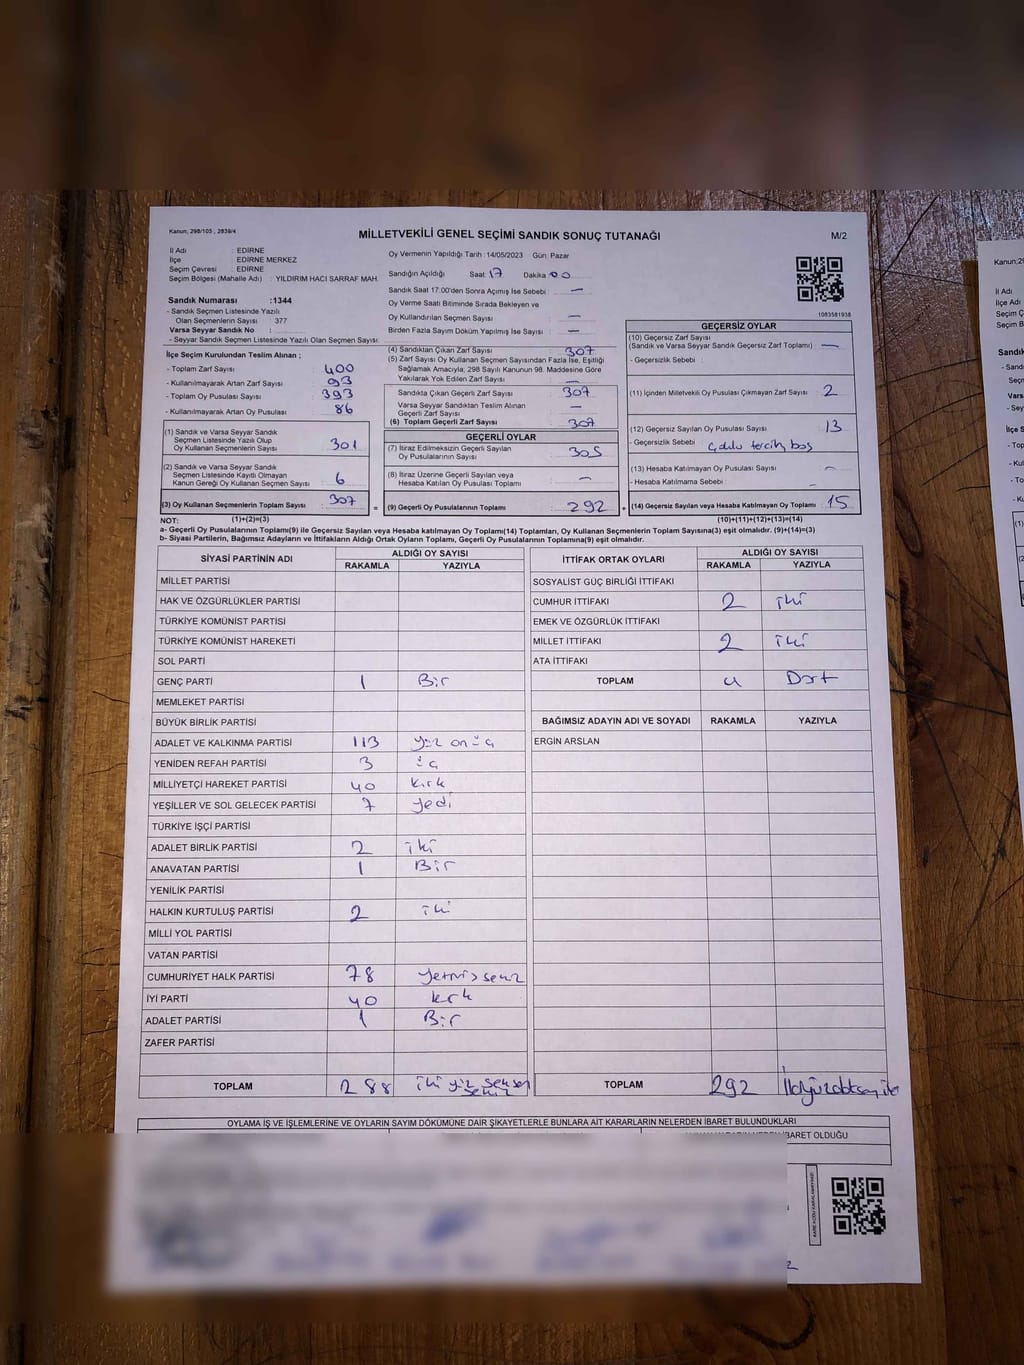 Kanun; 298/105 , 2839/4
MİLLETVEKİLİ GENEL SEÇİMİ SANDIK SONUÇ TUTANAĞI
M/2
İl Adı : EDİRNE
İlçe : EDİRNE MERKEZ
Seçim Çevresi : EDİRNE
Seçim Bölgesi (Mahalle Adı) : YILDIRIM HACI SARRAF MAH.
Sandık Numarası :1344
- Sandık Seçmen Listesinde Yazılı
Olan Seçmenlerin Sayısı : 377
Varsa Seyyar Sandık No :
- Seyyar Sandık Seçmen Listesinde Yazılı Olan Seçmen Sayısı:
Oy Vermenin Yapıldığı Tarih : 14/05/2023 Gün: Pazar
Sandığın Açıldığı Saat: 17 Dakika: 00
Sandık Saat 17.00'den Sonra Açımış İse Sebebi : —
Oy Verme Saati Bitiminde Sırada Bekleyen ve
Oy Kullandırılan Seçmen Sayısı : —
Birden Fazla Sayım Döküm Yapılmış İse Sayısı : —
1083581938
İlçe Seçim Kurulundan Teslim Alınan ;
- Toplam Zarf Sayısı : 400
- Kullanılmayarak Artan Zarf Sayısı : 93
- Toplam Oy Pusulası Sayısı : 393
- Kullanılmayarak Artan Oy Pusulası : 86
(1) Sandık ve Varsa Seyyar Sandık
Seçmen Listesinde Yazılı Olup
Oy Kullanan Seçmenlerin Sayısı : 301
(2) Sandık ve Varsa Seyyar Sandık
Seçmen Listesinde Kayıtlı Olmayan
Kanun Gereği Oy Kullanan Seçmen Sayısı : 6
(3) Oy Kullanan Seçmenlerin Toplam Sayısı : 307
(4) Sandıktan Çıkan Zarf Sayısı : 307
(5) Zarf Sayısı Oy Kullanan Seçmen Sayısından Fazla İse, Eşitliği
Sağlamak Amacıyla; 298 Sayılı Kanunun 98. Maddesine Göre
Yakılarak Yok Edilen Zarf Sayısı : —
Sandıkta Çıkan Geçerli Zarf Sayısı : 307
Varsa Seyyar Sandıktan Teslim Alınan
Geçerli Zarf Sayısı : —
(6) Toplam Geçerli Zarf Sayısı : 307
GEÇERLİ OYLAR
(7) İtiraz Edilmeksizin Geçerli Sayılan
Oy Pusulalarının Sayısı : 305
(8) İtiraz Üzerine Geçerli Sayılan veya
Hesaba Katılan Oy Pusulası Toplamı : —
= (9) Geçerli Oy Pusulalarının Toplamı : 292 +
GEÇERSİZ OYLAR
(10) Geçersiz Zarf Sayısı
(Sandık ve Varsa Seyyar Sandık Geçersiz Zarf Toplamı) : —
- Geçersizlik Sebebi :
(11) İçinden Milletvekili Oy Pusulası Çıkmayan Zarf Sayısı : 2
(12) Geçersiz Sayılan Oy Pusulası Sayısı : 13
- Geçersizlik Sebebi : Çoklu tercih boş
(13) Hesaba Katılmayan Oy Pusulası Sayısı : —
- Hesaba Katılmama Sebebi : —
(14) Geçersiz Sayılan veya Hesaba Katılmayan Oy Toplamı : 15
NOT: (1)+(2)=(3) (10)+(11)+(12)+(13)=(14)
a- Geçerli Oy Pusulalarının Toplamı(9) ile Geçersiz Sayılan veya Hesaba katılmayan Oy Toplamı(14) Toplamları, Oy Kullanan Seçmenlerin Toplam Sayısına(3) eşit olmalıdır. (9)+(14)=(3)
b- Siyasi Partilerin, Bağımsız Adayların ve İttifakların Aldığı Ortak Oyların Toplamı, Geçerli Oy Pusulalarının Toplamına(9) eşit olmalıdır.
SİYASİ PARTİNİN ADI ALDIĞI OY SAYISI
RAKAMLA YAZIYLA
MİLLET PARTİSİ
HAK VE ÖZGÜRLÜKLER PARTİSİ
TÜRKİYE KOMÜNİST PARTİSİ
TÜRKİYE KOMÜNİST HAREKETİ
SOL PARTİ
GENÇ PARTİ 1 Bir
MEMLEKET PARTİSİ
BÜYÜK BİRLİK PARTİSİ
ADALET VE KALKINMA PARTİSİ 113 yüz on üç
YENİDEN REFAH PARTİSİ 3 üç
MİLLİYETÇİ HAREKET PARTİSİ 40 kırk
YEŞİLLER VE SOL GELECEK PARTİSİ 7 yedi
TÜRKİYE İŞÇİ PARTİSİ
ADALET BİRLİK PARTİSİ 2 iki
ANAVATAN PARTİSİ 1 Bir
YENİLİK PARTİSİ
HALKIN KURTULUŞ PARTİSİ 2 iki
MİLLİ YOL PARTİSİ
VATAN PARTİSİ
CUMHURİYET HALK PARTİSİ 78 yetmiş sekiz
İYİ PARTİ 40 kırk
ADALET PARTİSİ 1 Bir
ZAFER PARTİSİ
TOPLAM 288 iki yüz seksen sekiz
İTTİFAK ORTAK OYLARI ALDIĞI OY SAYISI
RAKAMLA YAZIYLA
SOSYALİST GÜÇ BİRLİĞİ İTTİFAKI
CUMHUR İTTİFAKI 2 iki
EMEK VE ÖZGÜRLÜK İTTİFAKI
MİLLET İTTİFAKI 2 iki
ATA İTTİFAKI
TOPLAM 4 Dört
BAĞIMSIZ ADAYIN ADI VE SOYADI RAKAMLA YAZIYLA
ERGİN ARSLAN
TOPLAM 292
OYLAMA İŞ VE İŞLEMLERİNE VE OYLARIN SAYIM DÖKÜMÜNE DAİR ŞİKAYETLERLE BUNLARA AİT KARARLARIN NELERDEN İBARET BULUNDUKLARI
İBARET OLDUĞU
Kanun;29
İl Adı
İlçe Adı
Seçim Ç
Seçim B
Sandık